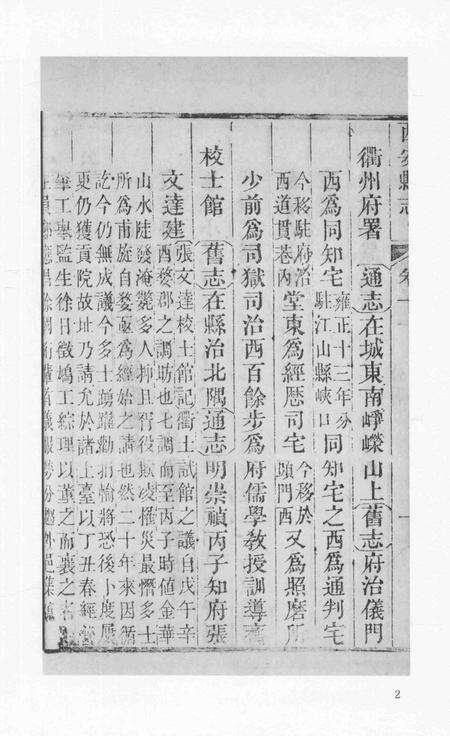 西安縣志 卷十
衢州府署 通志在城東南崢嶸山上舊志府治儀門
西爲同知宅雍正十三年分駐江山縣峽口同知宅之西爲通判宅
今移駐府治西道貫巷內堂東爲經歷司宅今移於頭門西又爲照磨所
少前爲司獄司治西百餘步爲府儒學教授訓導齋
校士館 舊志在縣治北隅通志明崇禎丙子知府張
文達建張文達校士館記衢士試館之議自戌午辛
酉婺郡之調坊也七調而至丙子時値金華
山水陡發淹斃多人抑且胥役欺凌摧災最慘多士
所爲甫旋自婺亟爲經始之請也然二十年來因循
訖今仍無成議今多士踴躍勸捐愉將恐後卜度屢
更仍獲貢院故址乃請允於諸上臺以丁丑春經
工舉監生徐日徵鳩工綜理以董之而襄之者
2